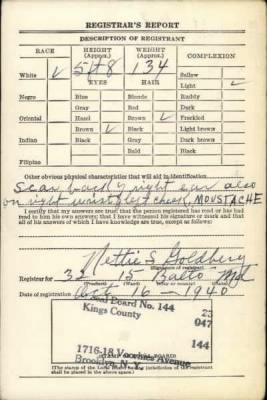 REGISTRAR'S REPORT
DESCRIPTION OF REGISTRANT
RACE HEIGHT (Approx.) WEIGHT (Approx.) COMPLEXION
White ✓ 5ft 8 134 Sallow
EYES HAIR Light ✓
Negro Blue Blonde Ruddy
Gray Red Dark
Oriental Hazel Brown ✓ Freckled
Brown ✓ Black Light brown
Indian Black Gray Dark brown
Bald Black
Filipino
Other obvious physical characteristics that will aid in identification
Scar back of right ear also
on right wrist & left cheek, MOUSTACHE
I certify that my answers are true; that the person registered has read or has had
read to him his own answers; that I have witnessed his signature or mark and that
all of his answers of which I have knowledge are true, except as follows:
Nettie S. Goldberg
(Signature of registrar)
Registrar for 32 15 Balto Md
Date of registration Oct 16 - 1940
Local Board No. 144 23
Kings County 047
144
1716-18 Voorhies Avenue
Brooklyn, N. Y.
(The stamp of the Local Board having jurisdiction of the registrant
shall be placed in the above space.)